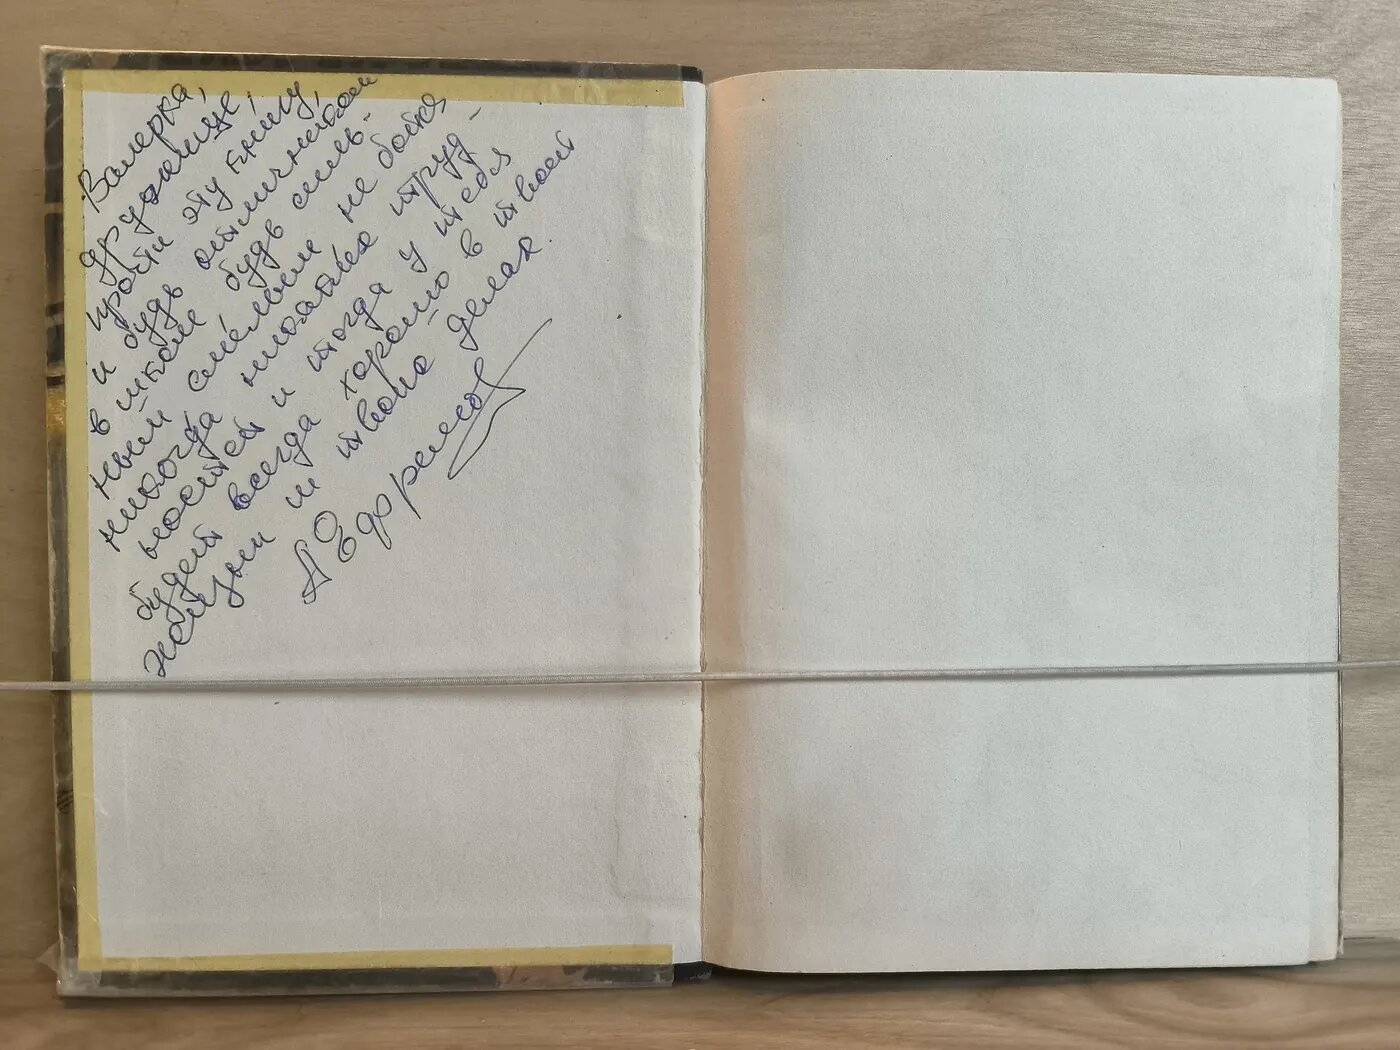 Валерка,
дружище,
прочти эту книгу,
и будь отличником
в школе будь силь-
ным смелым не бойся
никогда никаких труд-
ностей и тогда у тебя
будет всегда хорошо в твоей
жизни и твоих делах.
А Ефремов